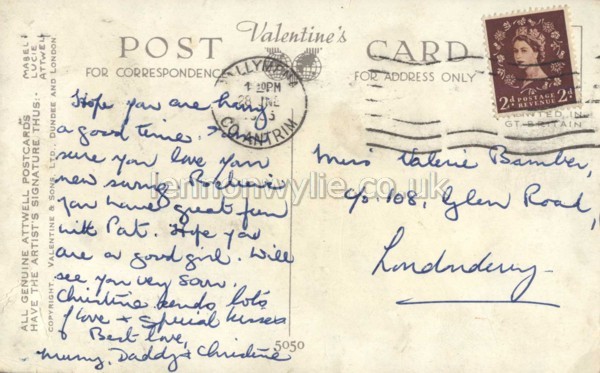 Valentine's
POST CARD
FOR CORRESPONDENCE
FOR ADDRESS ONLY
MABEL
LUCIE
ATTWELL
ALL GENUINE ATTWELL POSTCARDS
HAVE THE ARTIST'S SIGNATURE THUS:
COPYRIGHT, VALENTINE & SONS, LTD., DUNDEE AND LONDON
BALLYMENA
CO. ANTRIM
POSTAGE
REVENUE
2d 2d
PRINTED IN
GT. BRITAIN
Hope you are having
a good time.
sure you love your
new swing.
you have great fun
with Pat. Hope you
are a good girl. Will
see you very soon.
Christine sends lots
of love + special kisses
Best love,
Mummy, Daddy & Christine
Miss Valerie Bamber,
c/o. 108, Glen Road,
Londonderry
lennonwylie.co.uk
5050